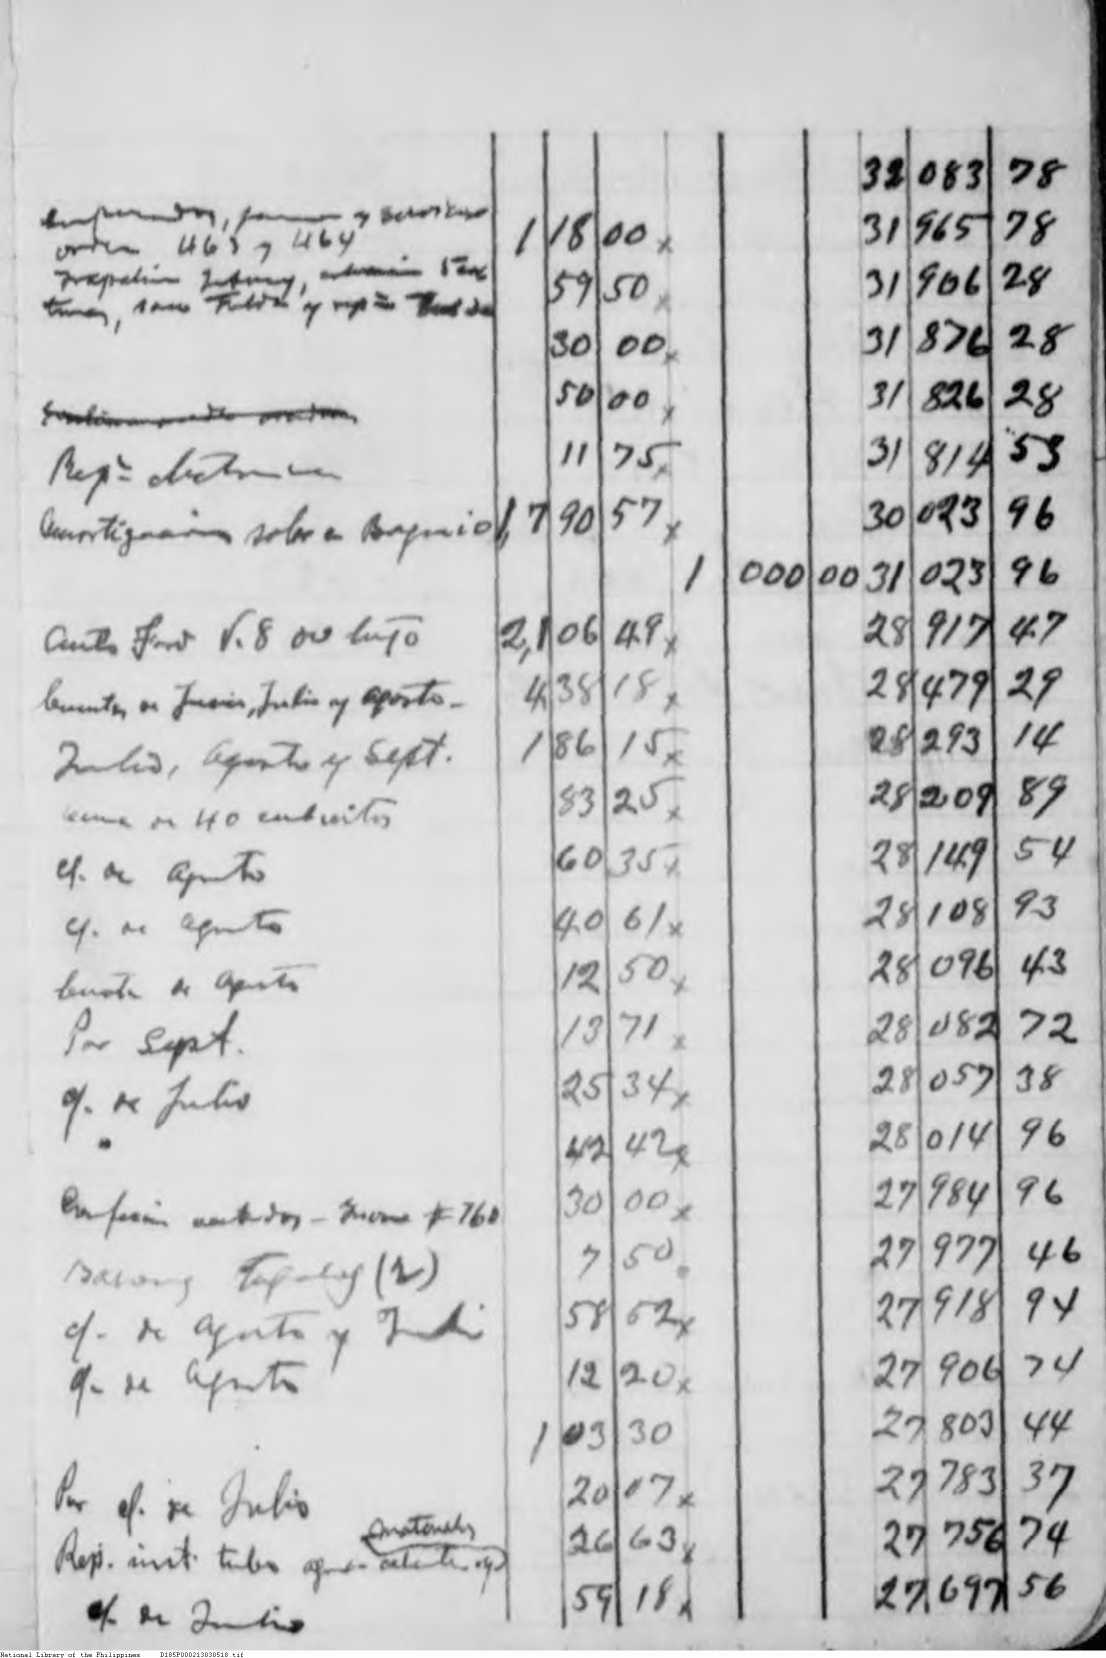 32 083 78
y servicios 1 18 00 x 31 965 78
orden 463 y 464
59 50 x 31 906 28
30 00 x 31 876 28
50 00 x 31 826 28
Repn 11 75 x 31 814 53
Amortización sobre en Baguio 1,7 90 57 x 30 023 96
1 000 00 31 023 96
Auto Ford V.8 de lujo 2,1 06 49 x 28 917 47
Cuentas de Junio, Julio y Agosto - 4 38 18 x 28 479 29
Julio, Agosto y Sept. 1 86 15 x 28 293 14
de 40 cubiertos 83 25 x 28 209 89
cf. de Agosto 60 35 x 28 149 54
cf. de Agosto 40 61 x 28 108 93
Cuota de Agosto 12 50 x 28 096 43
Por Sept. 13 71 x 28 082 72
cf. de Julio 25 34 x 28 057 38
" 42 42 x 28 014 96
Confección vestidos - # 760 30 00 x 27 984 96
Barong Tagalog (2) 7 50 27 977 46
cf. de Agosto y Julio 58 52 x 27 918 94
cf. de Agosto 12 20 x 27 906 74
1 03 30 27 803 44
Por cf. de Julio 20 07 x 27 783 37
materiales
Rep. inst. tubo agua caliente y 26 63 x 27 756 74
cf. de Julio 59 18 x 27,697 56
National Library of the Philippines D185P000213030518.tif